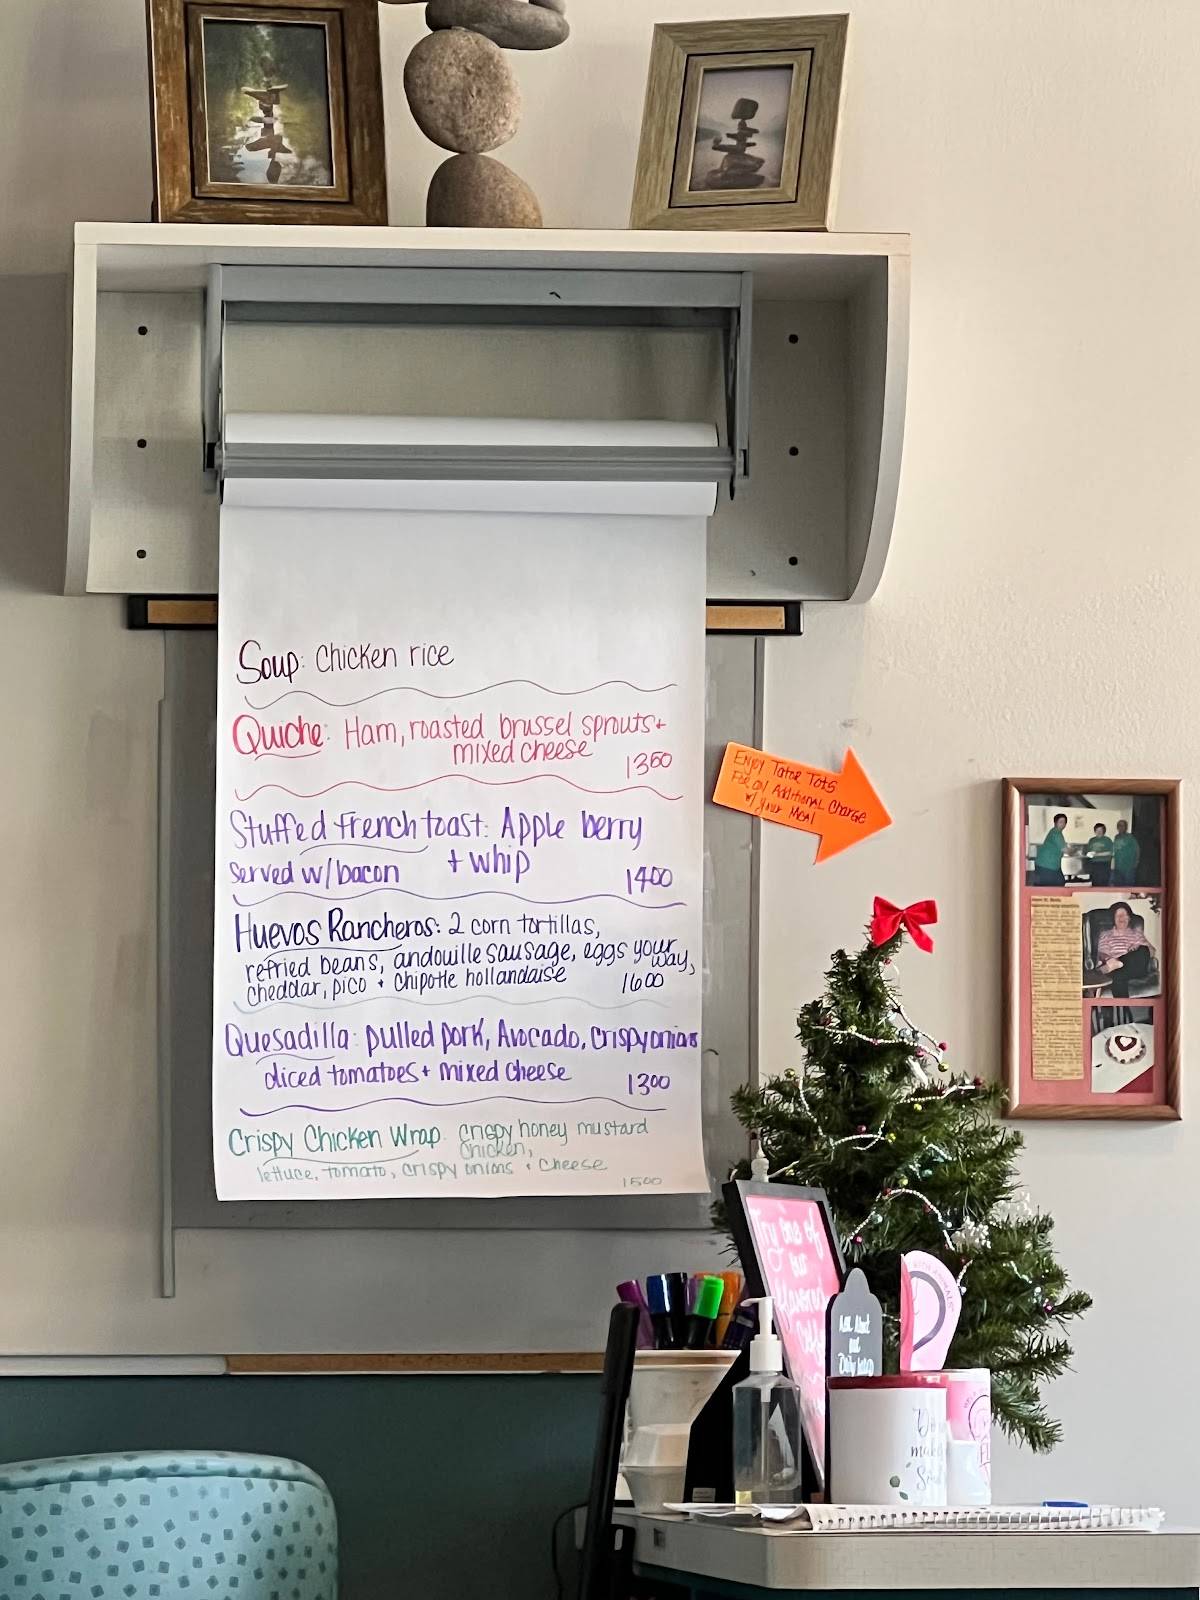 Soup: Chicken rice
Quiche: Ham, roasted brussel sprouts +
mixed cheese
1350
Stuffed French toast: Apple berry
+ whip
Served w/bacon
1400
Huevos Rancheros: 2 corn tortillas,
refried beans, andouille sausage, eggs your way,
cheddar, pico + chipotle hollandaise
1600
Quesadilla: pulled pork, Avocado, Crispy onions
diced tomatoes + mixed cheese
1300
Crispy Chicken Wrap: crispy honey mustard
chicken,
lettuce, tomato, crispy onions + cheese
1500
Enjoy Tator Tots
For an Additional Charge
w/ your Meal
Try one of
our
flavored
Ask About
our